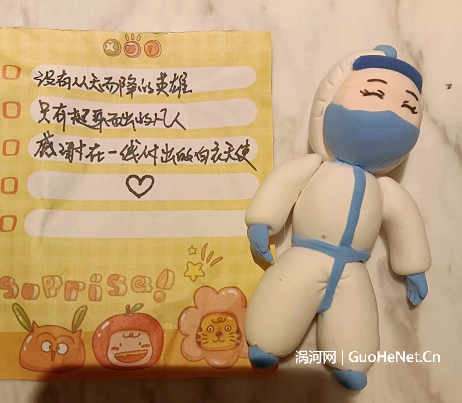 没有从天而降的英雄
只有挺身而出的凡人
感谢在一线付出的白衣天使
surprise!
涡河网 | GuoHeNet.Cn